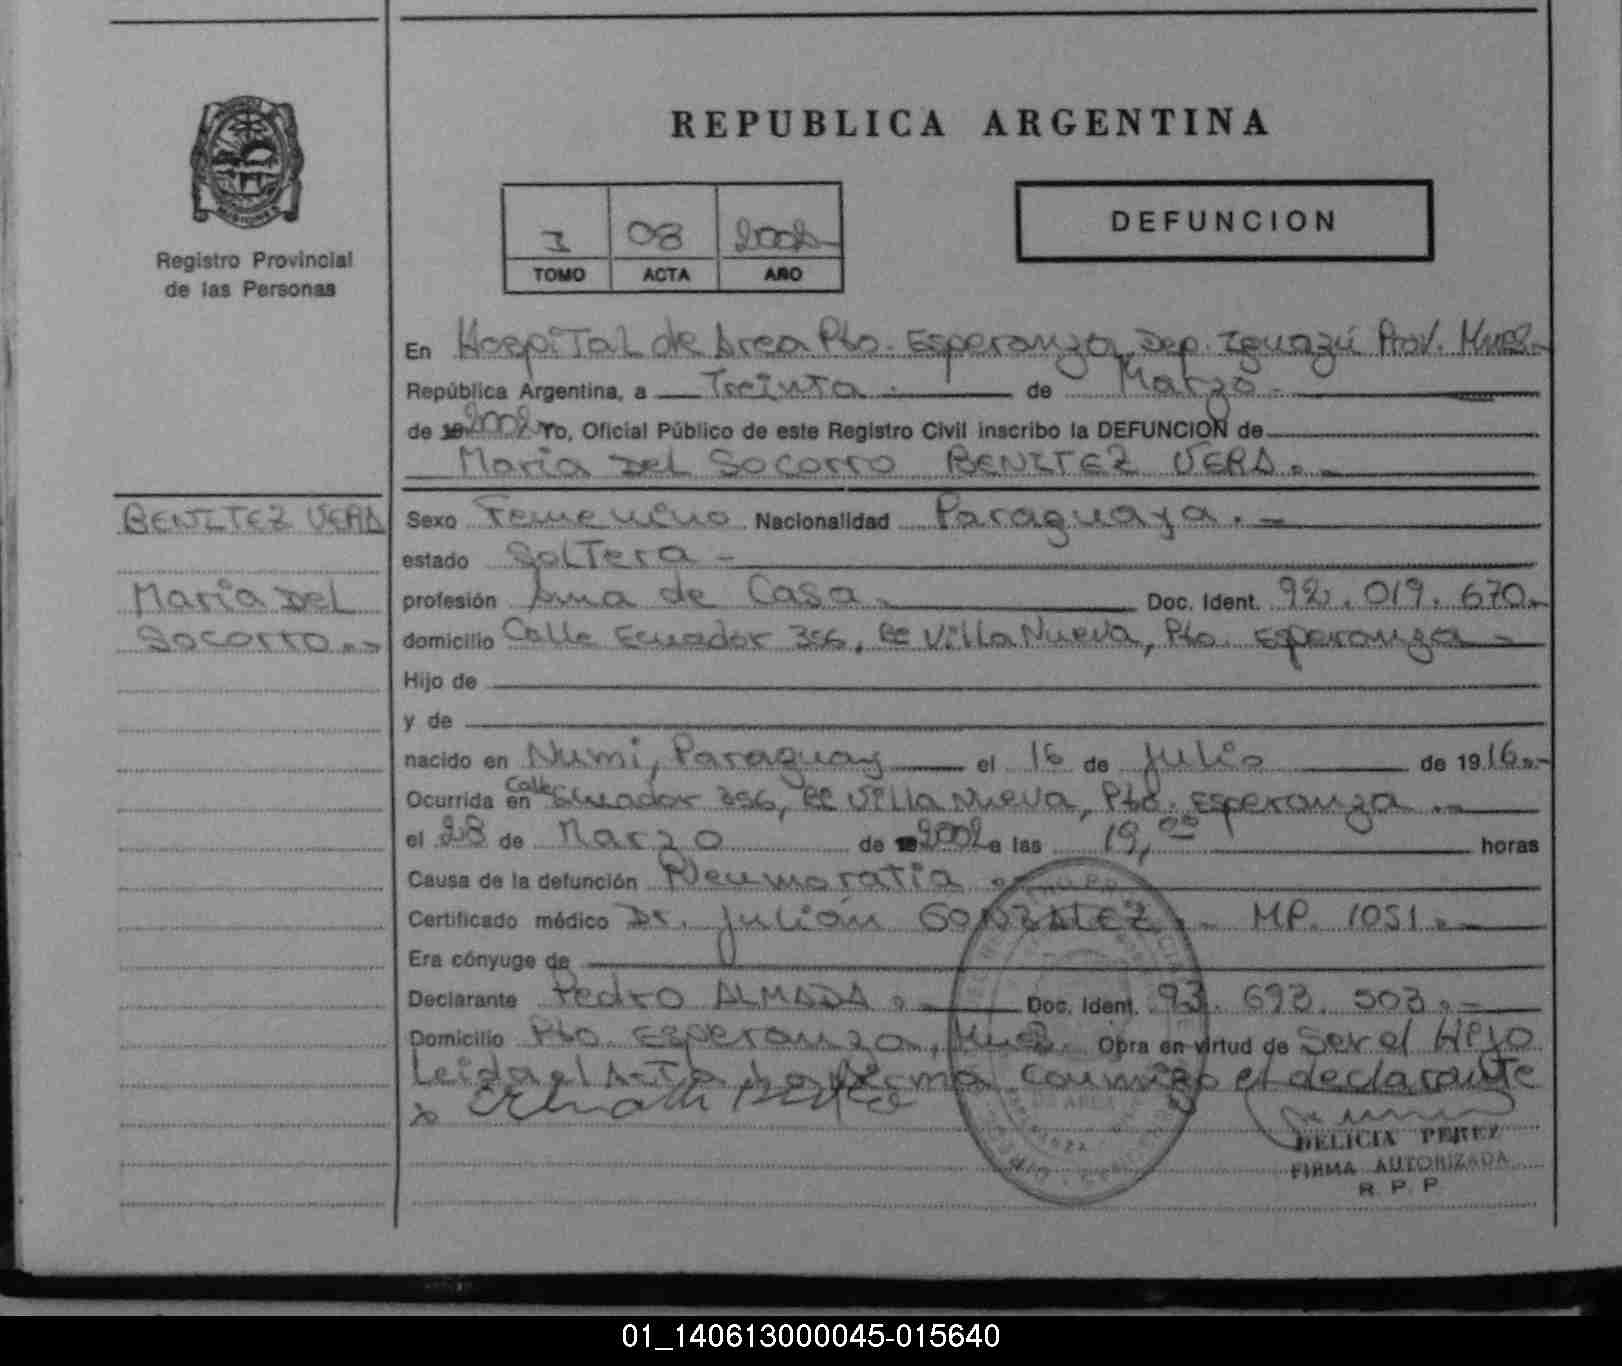 REPUBLICA ARGENTINA
MISIONES
Registro Provincial
de las Personas
I 08 2002
TOMO ACTA AÑO
DEFUNCION
En Hospital de Area Pto. Esperanza, Dep. Iguazú Prov. Mnes.-
República Argentina, a Treinta.- de Marzo.-
de 19 2002 Yo, Oficial Público de este Registro Civil inscribo la DEFUNCION de
Maria Del Socorro BENITEZ VERA.-
BENITEZ VERA
Maria Del
Socorro.-
Sexo Femenino Nacionalidad Paraguaya.-
estado Soltera-
profesión Ama de Casa.- Doc. Ident. 92.019.670.-
domicilio Calle Ecuador 356, Bº Villa Nueva, Pto. Esperanza-
Hijo de
y de
nacido en Numi, Paraguay el 16 de Julio de 1916.-
Ocurrida en Calle Ecuador 356, Bº Villa Nueva, Pto. Esperanza.-
el 28 de Marzo de 2002 a las 19,00 horas
Causa de la defunción Neumoratia.-
Certificado médico Dr. Julián GONZALEZ.- MP. 1051.-
Era cónyuge de
Declarante Pedro ALMADA.- Doc. Ident. 93.693.503.-
Domicilio Pto Esperanza, Mnes. Obra en virtud de Ser el Hijo
Leida el Acta, la firma conmigo el declarante
DE AREA
DELICIA PEREZ
FIRMA AUTORIZADA
R. P. P.
01_140613000045-015640